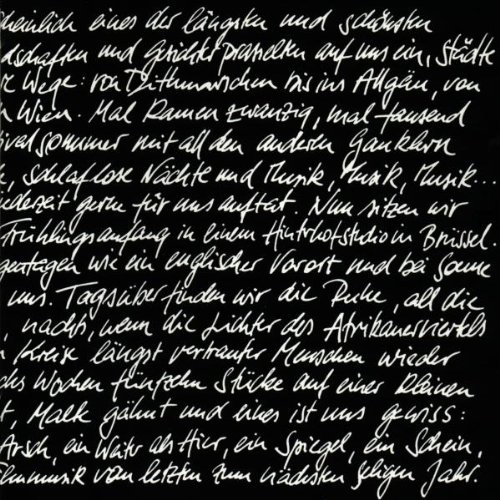 heinlich eines der längsten und schönsten
dschaften und Gesichter prasselten auf uns ein, Städte
e Wege: von Dithmarschen bis ins Allgäu, von
n Wien. Mal kamen zwanzig, mal tausend
ivalsommer mit all den anderen Gauklern
e, schlaflose Nächte und Musik, Musik, Musik...
ederzeit gerne für uns auftat. Nun sitzen wir
Frühlingsanfang in einem Hinterhofstudio in Brüssel.
getagen wie ein englischer Vorort und bei Sonne
uns. Tagsüber finden wir die Ruhe, all die
, nachts, wenn die Lichter des Afrikanerviertels
n Kreise längst vertrauter Menschen wieder
chs Wochen fünfzehn Stücke auf einer kleinen
t, Malk gähnt und eines ist uns gewiss:
Arsch, ein Weiter als Hier, ein Spiegel, ein Schein,
lmmusik vom letzten zum nächsten seligen Jahr.